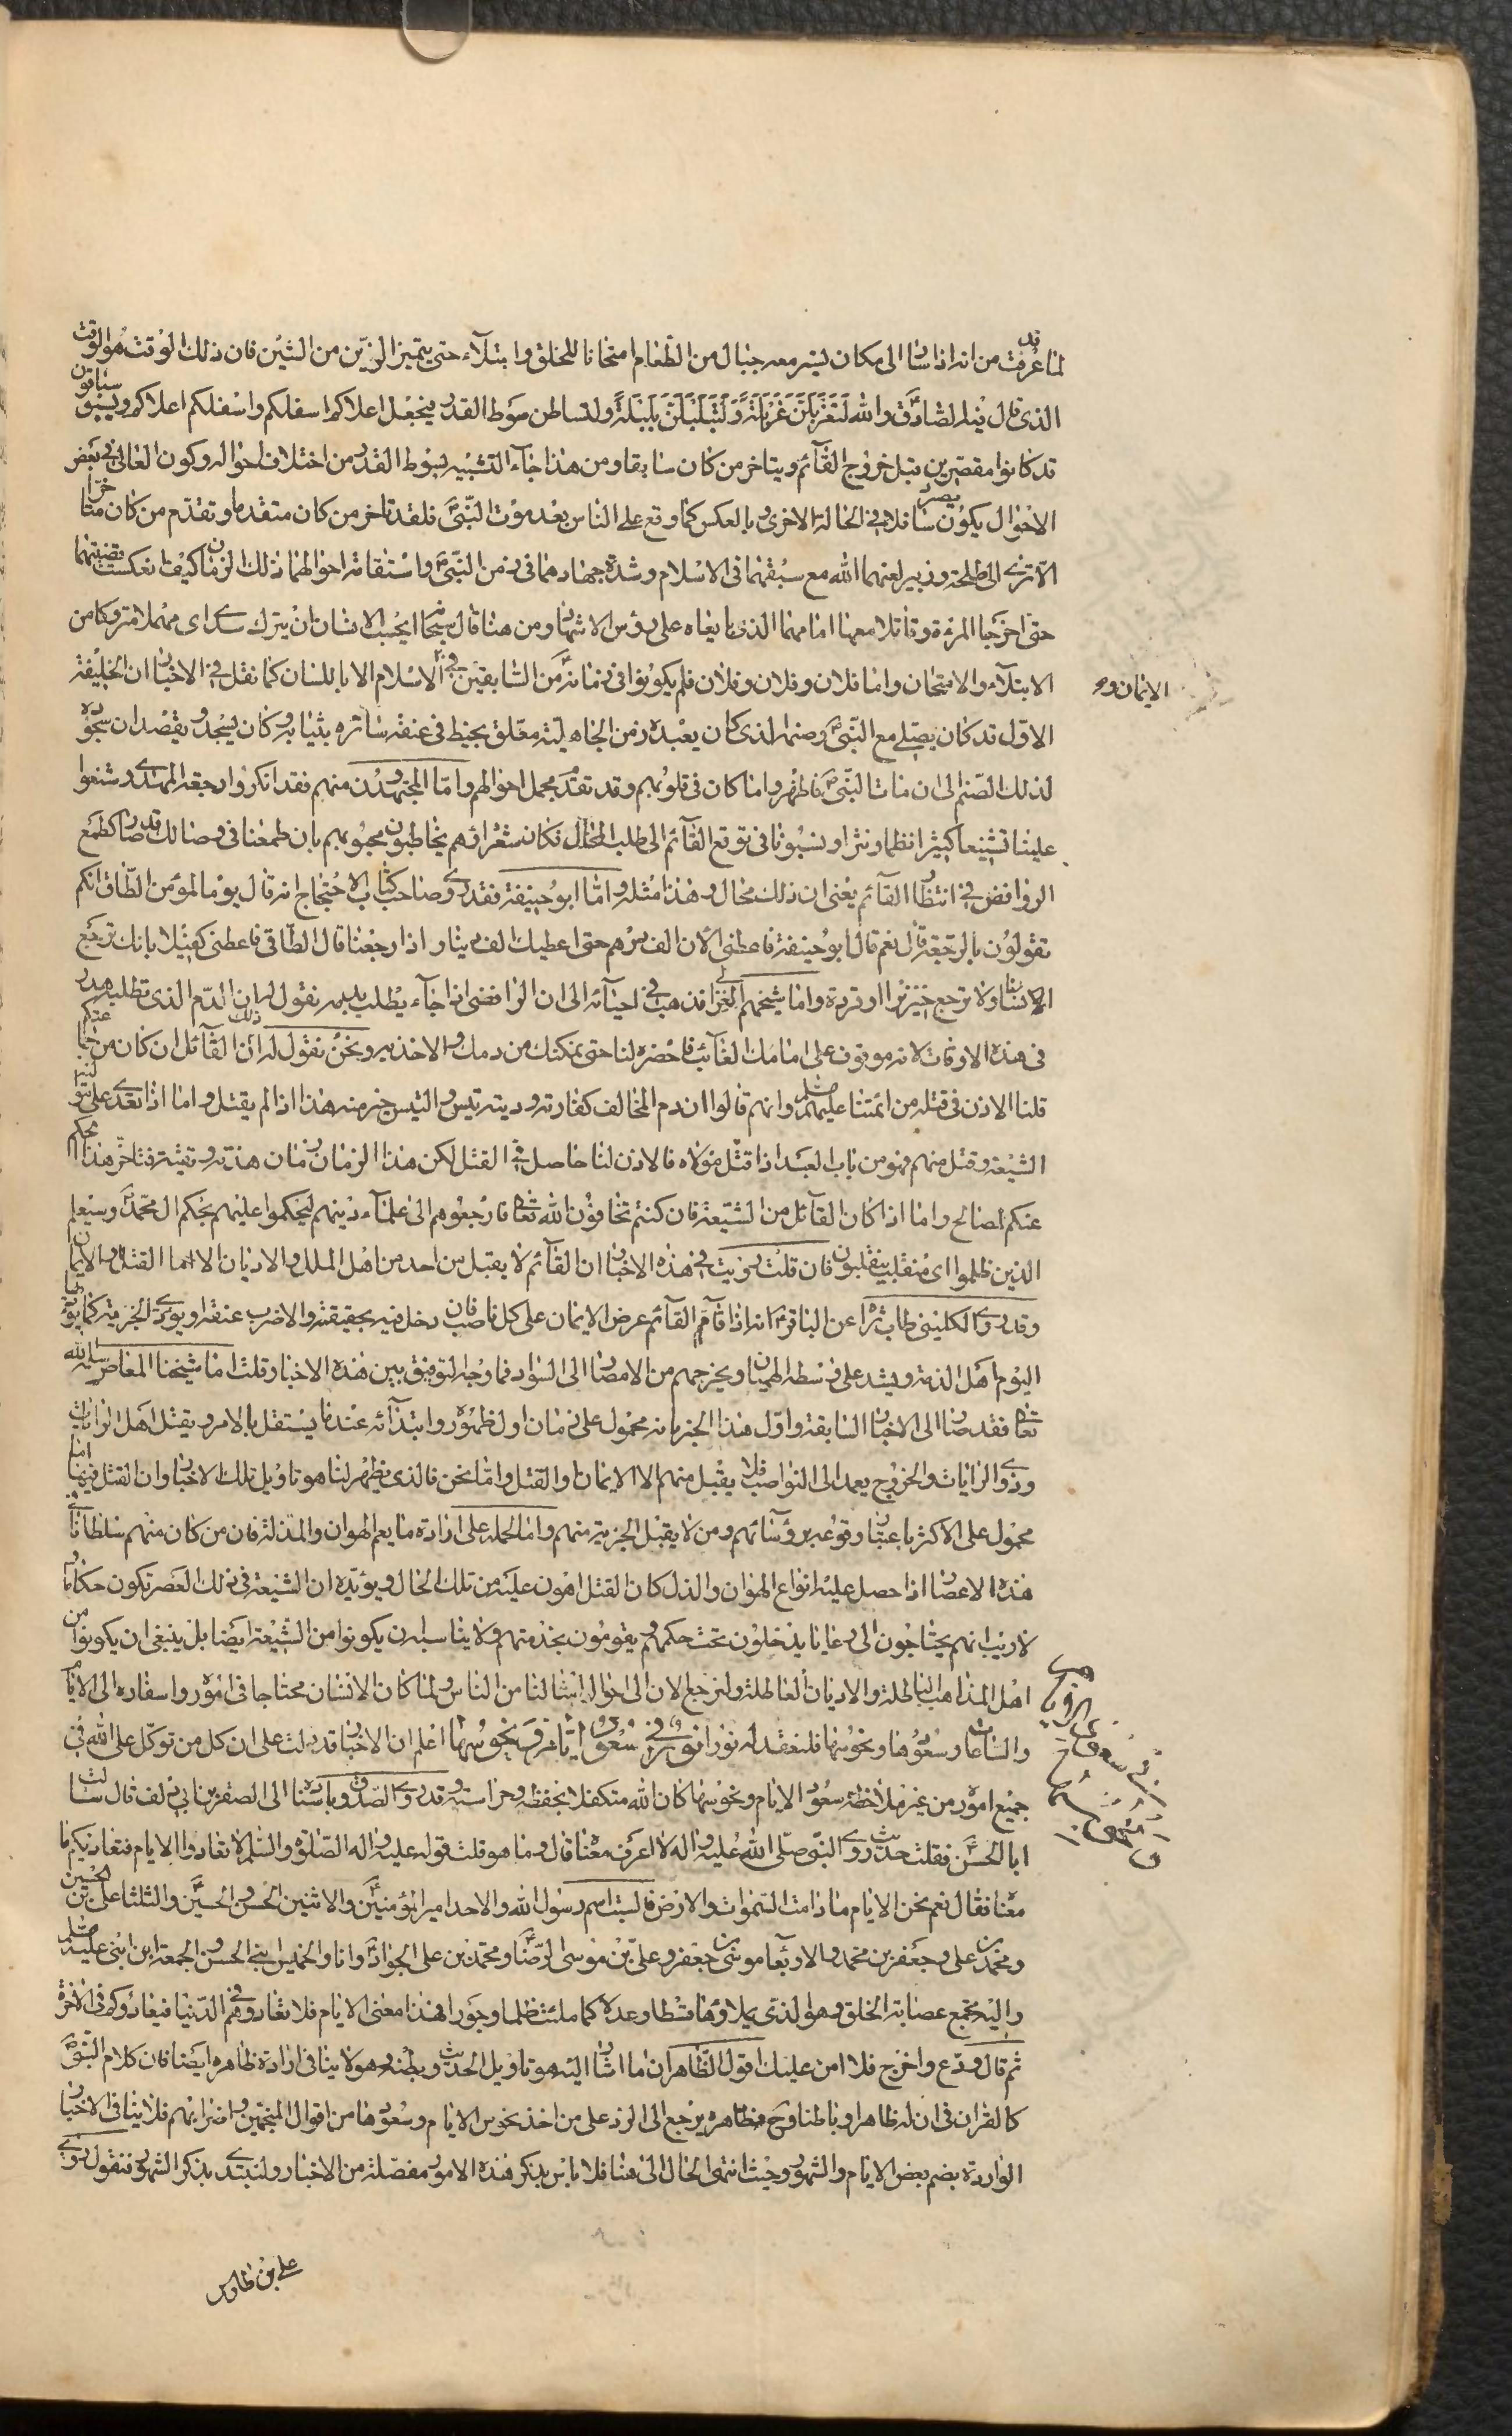 لما قد عرفت من انه اذا سار الى مكان يسير معه جبال من الطعام امتحانا للخلق وابتلآء حتى يتميز الزين من الشين فان ذلك الوقت هو الوقت
الذى قال فيه الصادق ع والله لتغربلن غربلة ولتبلبلن بلبلة ولتساطن سوط القدر فيجعل اعلاكم اسفلكم واسفلكم اعلاكم ويسبق سباقون
قد كانوا مقصرين قبل خروج القآئم ويتاخر من كان سابقا ومن هذا جآء التشبيه بسوط القدر من اختلاف احواله وكون العالى فى بعض
الاحوال يكون سافلا فى الحالة الاخرى وبالعكس كما وقع على الناس بعد موت النبى ص فلقد تاخر من كان متقدما وتقدم من كان متاخرا
الا ترى الى طلحة وزبير لعنهما الله مع سبقهما فى الاسلام وشدة جهادهما فى زمن النبى ص واستقامة احوالهما ذلك الزمان كيف انعكست قضيتهما
حتى اخرجا المرئة وقاتلا معها امامهما الذى بايعاه على رؤس الاشهاد ومن هنا قال سبحانه ايحسب الانسان ان يترك سدى اى مهملا متروكا من
الابتلآء والامتحان واما فلان وفلان وفلان فلم يكونوا فى زمانه ص من السابقين فى الاسلام الا باللسان كما نقل فى الاخبار ان الخليفة
الايمان و
الاول قد كان يصلى مع النبى ص وصنمه الذى كان يعبده زمن الجاهلية معلق بخيط فى عنقه ساتره بثيابه وكان يسجد ويقصد ان سجوده
لذلك الصنم الى ان مات النبى ص فاظهروا ما كان فى قلوبهم وقد تقدم مجمل احوالهم واما المجتهدون منهم فقد انكروا رجعة المهدى وشنعوا
علينا تشنيعا كثيرا نظما ونثرا ونسبونا فى توقع القآئم الى طلب المحال فكان شعراؤهم يخاطبون محبوبهم بان طمعنا فى وصالك قد صار كطمع
الروافض فى انتظار القآئم يعنى ان ذلك محال وهذا مثله واما ابو حنيفة فقد روى صاحب كتاب الاحتجاج انه قال يوما لمؤمن الطاق انكم
تقولون بالرجعة قال نعم قال ابو حنيفة فاعطنى الان الف درهم حتى اعطيك الف دينار اذا رجعنا قال الطاقى فاعطنى كفيلا بانك ترجع
انسانا ولا ترجع خنزيرا او قردة واما شيخهم الغزالى فذهب فى احيآئه الى ان الرافضى اذا جآء يطلب بدمه نقول له ان الدم الذى تطلبه هدر
فى هذه الاوقات لانه موقوف على امامك الغآئب فاحضره لنا حتى نمكنك من دمك والاخذ به ونحن نقول له ان ذلك القآئل ان كان من
قلنا الاذن فى قتله من ائمتنا عليهم السلم وانهم قالوا ان دم المخالف كفارته وديته تيس والتيس خير منه هذا اذا لم يقتل واما اذا تعدى على
الشيعة وقتل منهم فهو من باب العبد اذا قتل مولاه فالاذن لنا حاصل فى القتل لكن هذا الزمان زمان هدنة وتقية فتاخر هذا الحكم
عنكم لمصالح واما اذا كان القآتل من الشيعة فان كنتم تخافون الله تعالى فارجعوهم الى علمآء دينهم ليحكموا عليهم بحكم ال محمد ص وسيعلم
الذين ظلموا اى منقلب ينقلبون فان قلت رويت فى هذه الاخبار ان القآئم لا يقبل من احد من اهل الملل والاديان الا اما القتل او الايمان
وقد روى الكلينى طاب ثراه عن الباقر ع انه اذا قام القآئم عرض الايمان على كل ناصب فان دخل فيه بحقيقة والا ضرب عنقه او يؤدى الجزية كما يؤديها
اليوم اهل الذمة ويشد على وسطه الهميان ويخرجهم من الامصار الى السواد فما وجه التوفيق بين هذه الاخبار وقلت اما شيخنا المعاصر سلمه الله
تعالى فقد صار الى الاخبار السابقة واول هذا الخبر بانه محمول على زمان اول ظهوره وابتدآئه عندما يستقل بالامر ويقتل اهل الرايات
وذوى الرايات والخروج يعمد الى النواصب فلا يقبل منهم الا الايمان او القتل واما نحن فالذى يظهر لنا هو تاويل تلك الاخبار وان القتل فيها اما
محمول على الاكثر باعتبار وقوعه برؤسائهم ومن لا يقبل الجزية منهم واما الحمله على ارادة ما يعم الهوان والمذلة فان من كان منهم سلطانا فى
هذه الاعصار اذا حصل عليه انواع الهوان والذل كان القتل اهون عليه من تلك الحال ويؤيده ان الشيعة فى ذلك العصر تكون حكاما و
لا ريب انهم يحتاجون الى رعايا يدخلون تحت حكمهم ويقومون بخدمتهم ولا يناسب ان يكونوا من الشيعة ايضا بل ينبغى ان يكونوا من
اهل المذاهب الباطلة والاديان العاطلة ولنرجع الان الى احوال امثالنا من الناس ولما كان الانسان محتاجا فى اموره واسفاره الى الايام
والساعات وسعودها ونحوسها فلنعقد له نورا نور فى سعود ايام ونحوسها اعلم ان الاخبار قد دلت على ان كل من توكل على الله فى
جميع اموره من غير ملاحظة سعود الايام ونحوسها كان الله متكفلا بحفظه وحراسته وقد روى الصدوق باسناده الى الصقر بن ابى دلف قال سالت
ابا الحسن ع فقلت حديث روى النبى صلى الله عليه واله لا اعرف معناه قال وما هو قلت قوله عليه واله الصلوة والسلم لا تعادوا الايام فتعاديكم ما
معناه فقال نعم نحن الايام ما دامت السموات والارض فالسبت اسم رسول الله والاحد امير المؤمنين ع والاثنين الحسن والحسين ع والثلثا على بن الحسين
ومحمد بن على وجعفر بن محمد والاربعا موسى بن جعفر وعلى بن موسى الرضا ع ومحمد بن على الجواد ع وانا والخميس ابنى الحسن والجمعة ابن ابنى عليه السلم
واليه تجمع عصابة الخلق وهو الذى يملاؤها قسطا وعدلا كما ملئت ظلما وجورا فهذا معنى الايام فلا تعادوهم فى الدنيا فيعادوكم فى الاخرة
ثم قال ودع واخرج فلا امن عليك اقول الظاهر ان ما اشار اليه هو تاويل الحديث وبطنه وهو لا ينافى ارادة ظاهره ايضا فان كلام النبى ص
كالقران فى ان له ظاهرا وباطنا وح فظاهره يرجع الى الرد على من اخذ نحوس الايام وسعودها من اقوال المنجمين واضرابهم فلا ينافى الاخبار
الواردة بضم بعض الايام والشهور وحيث انتهى الحال الى هنا فلا باس بذكر هذه الامور مفصلة من الاخبار ولنبتدى بذكر الشهور فنقول روى
على بن طاوس